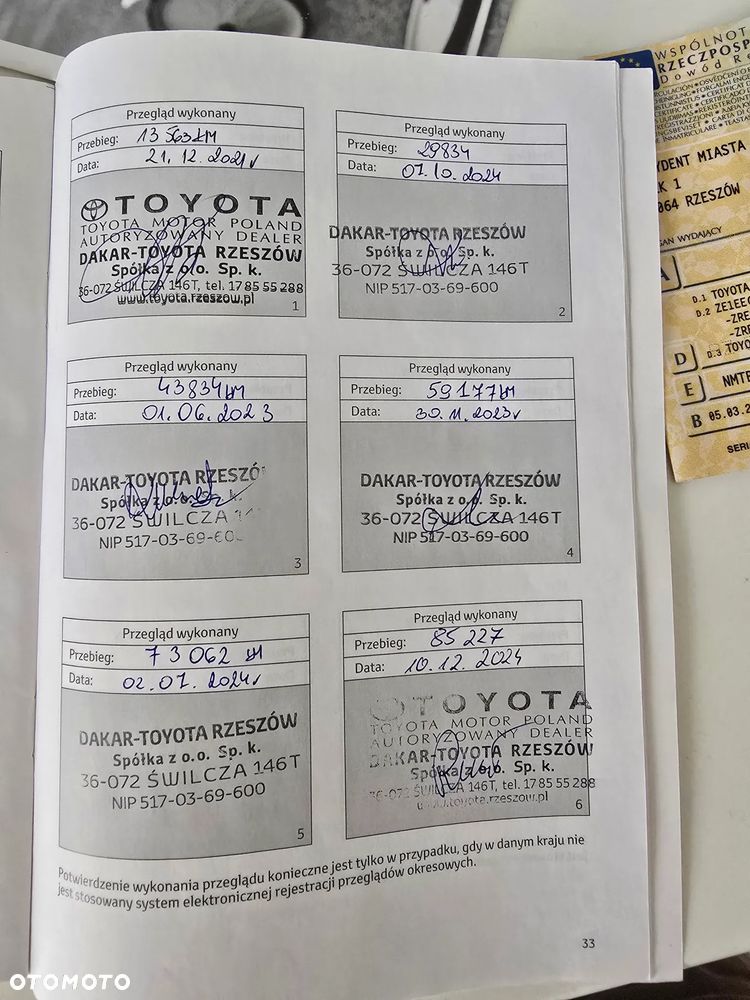 Przegląd wykonany
Przebieg: 13 563 KM
Data: 21. 12. 2021r
TOYOTA
TOYOTA MOTOR POLAND
AUTORYZOWANY DEALER
DAKAR-TOYOTA RZESZÓW
Spółka z o.o. Sp. k.
36-072 ŚWILCZA 146T, tel. 17 85 55 288
www.toyota.rzeszow.pl
1
Przegląd wykonany
Przebieg: 29834
Data: 07. 10. 2024
DAKAR-TOYOTA RZESZÓW
Spółka z o.o. Sp. k.
36-072 ŚWILCZA 146T
NIP 517-03-69-600
2
Przegląd wykonany
Przebieg: 43834 KM
Data: 01. 06. 2023
DAKAR-TOYOTA RZESZÓ
Spółka z o.o. Sp. k.
36-072 ŚWILCZA 14
NIP 517-03-69-60
3
Przegląd wykonany
Przebieg: 59177 KM
Data: 30. 11. 2023r
DAKAR-TOYOTA RZESZÓW
Spółka z o.o. Sp. k.
36-072 ŚWILCZA 146T
NIP 517-03-69-600
4
Przegląd wykonany
Przebieg: 73 062 KM
Data: 02. 07. 2024r
DAKAR-TOYOTA RZESZÓW
Spółka z o.o. Sp. k.
36-072 ŚWILCZA 146T
NIP 517-03-69-600
5
Przegląd wykonany
Przebieg: 85 227
Data: 10. 12. 2024
TOYOTA
TOYOTA MOTOR POLAND
AUTORYZOWANY DEALER
DAKAR-TOYOTA RZESZÓW
Spółka z o.o. Sp. k.
36-072 ŚWILCZA 146T, tel. 17 85 55 288
www.toyota.rzeszow.pl
6
Potwierdzenie wykonania przeglądu konieczne jest tylko w przypadku, gdy w danym kraju nie
jest stosowany system elektronicznej rejestracji przeglądów okresowych.
33
WSPÓLNOT
RZECZPOSP
Dowód Re
YDENT MIASTA
K 1
064 RZESZÓW
GAN WYDAJĄCY
A
D
D.1 TOYOTA
D.2 ZE1EE
-ZRE
-ZRE
D.3 TOYO
E NMTB
B 05.03.2
SERI
OTOMOTO